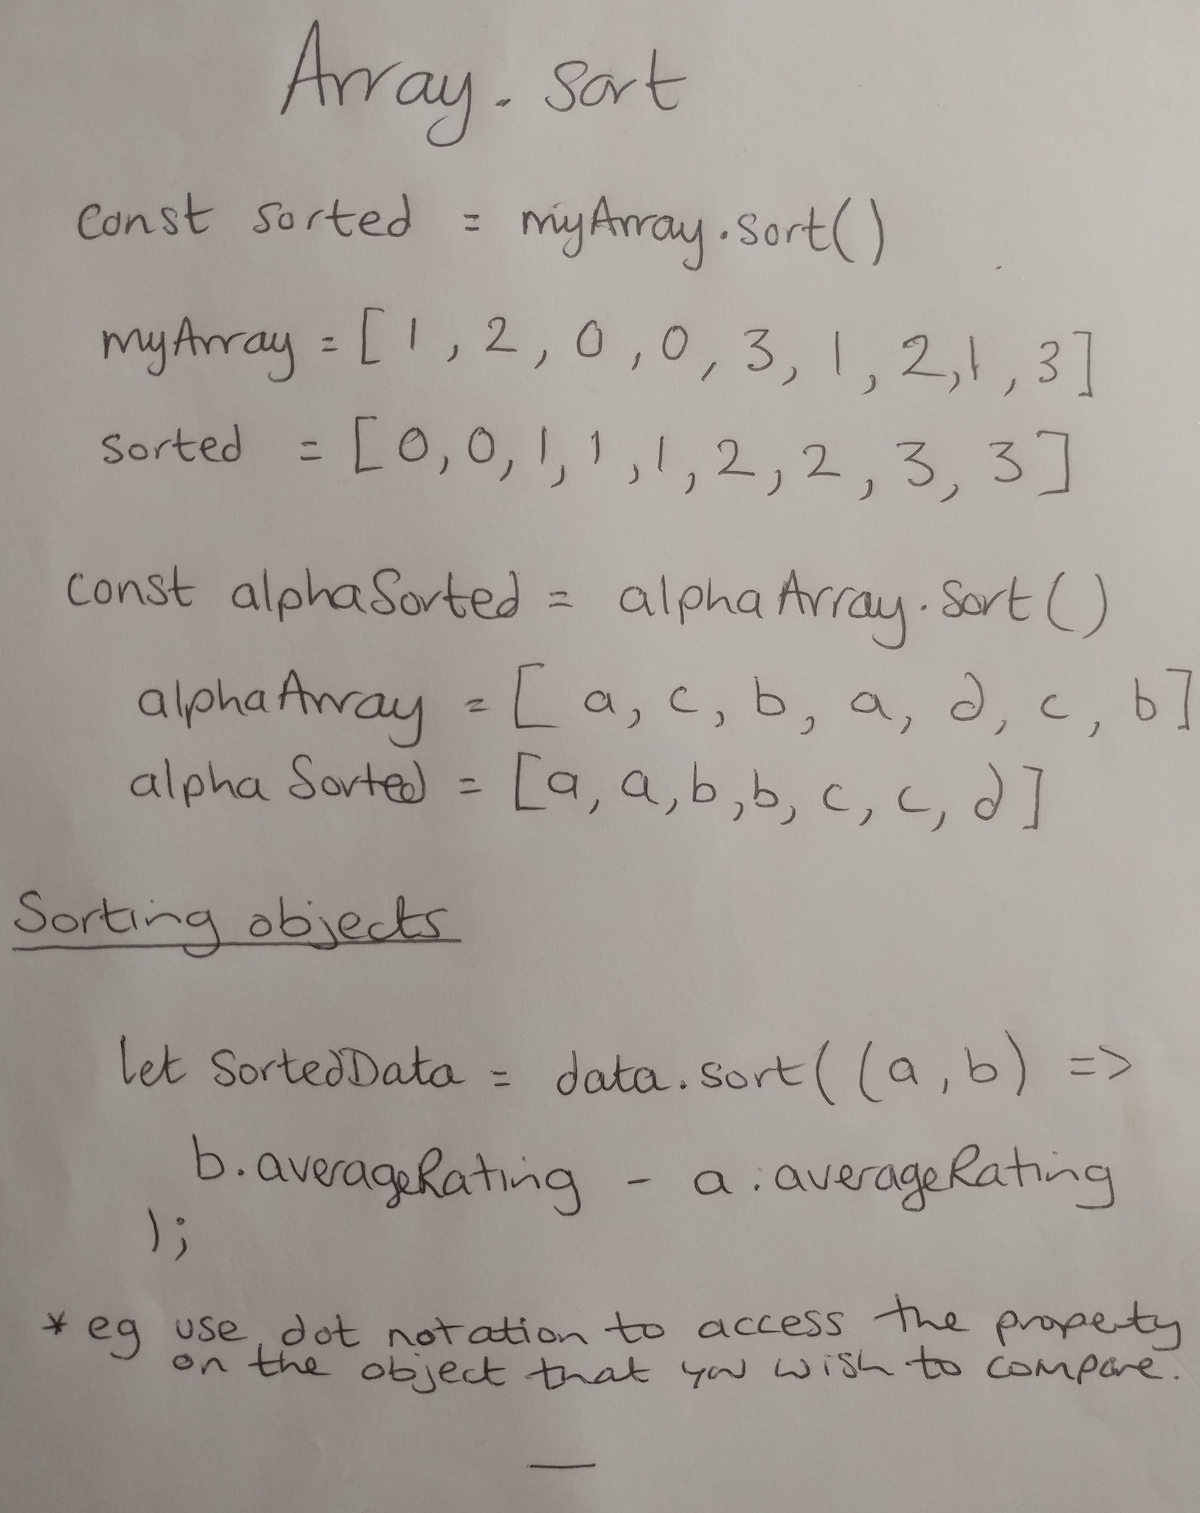 Array.sort
const sorted = myArray.sort()
myArray = [1, 2, 0, 0, 3, 1, 2, 1, 3]
sorted = [0, 0, 1, 1, 1, 2, 2, 3, 3]
const alphaSorted = alphaArray.sort()
alphaArray = [a, c, b, a, d, c, b]
alphaSorted = [a, a, b, b, c, c, d]
Sorting objects
let SortedData = data.sort((a, b) =>
b.averageRating - a.averageRating
);
* eg use dot notation to access the property
on the object that you wish to compare.